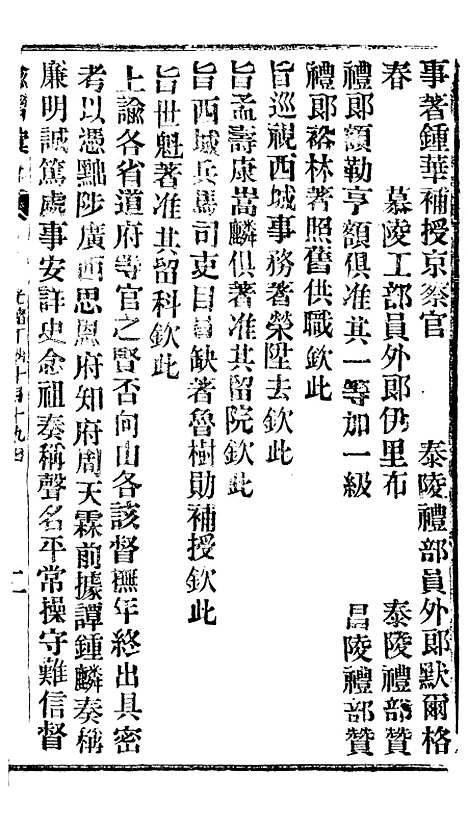 事著鍾華補授京察官　　　泰陵禮部員外郎默爾格
春　　　慕陵工部員外郎伊里布　　　泰陵禮部贊
禮郎額勒亨額俱准其一等加一級　　　昌陵禮部贊
禮郎裕林著照舊供職欽此
旨巡視西城事務著榮陞去欽此
旨孟壽康嵩麟俱著准其留院欽此
旨西城兵馬司吏目員缺著魯樹勛補授欽此
旨世魁著准其留科欽此
上諭各省道府等官之賢否向由各該督撫年終出具密
考以憑黜陟廣西思恩府知府周天霖前據譚鍾麟奏稱
廉明誠篤處事安詳史念祖奏稱聲名平常操守難信督
二